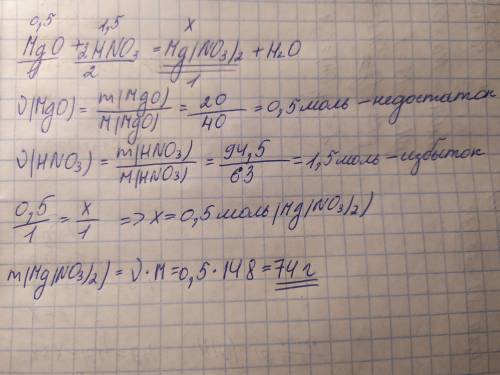 0,5 1,5 x
MgO + 2HNO₃ = Mg(NO₃)₂ + H₂O
1 2 1
ν(MgO) = m(MgO)/M(MgO) = 20/40 = 0,5 моль - недостаток
ν(HNO₃) = m(HNO₃)/M(HNO₃) = 94,5/63 = 1,5 моль - избыток
0,5/1 = x/1 => x = 0,5 моль (Mg(NO₃)₂)
m(Mg(NO₃)₂) = ν · M = 0,5 · 148 = 74 г